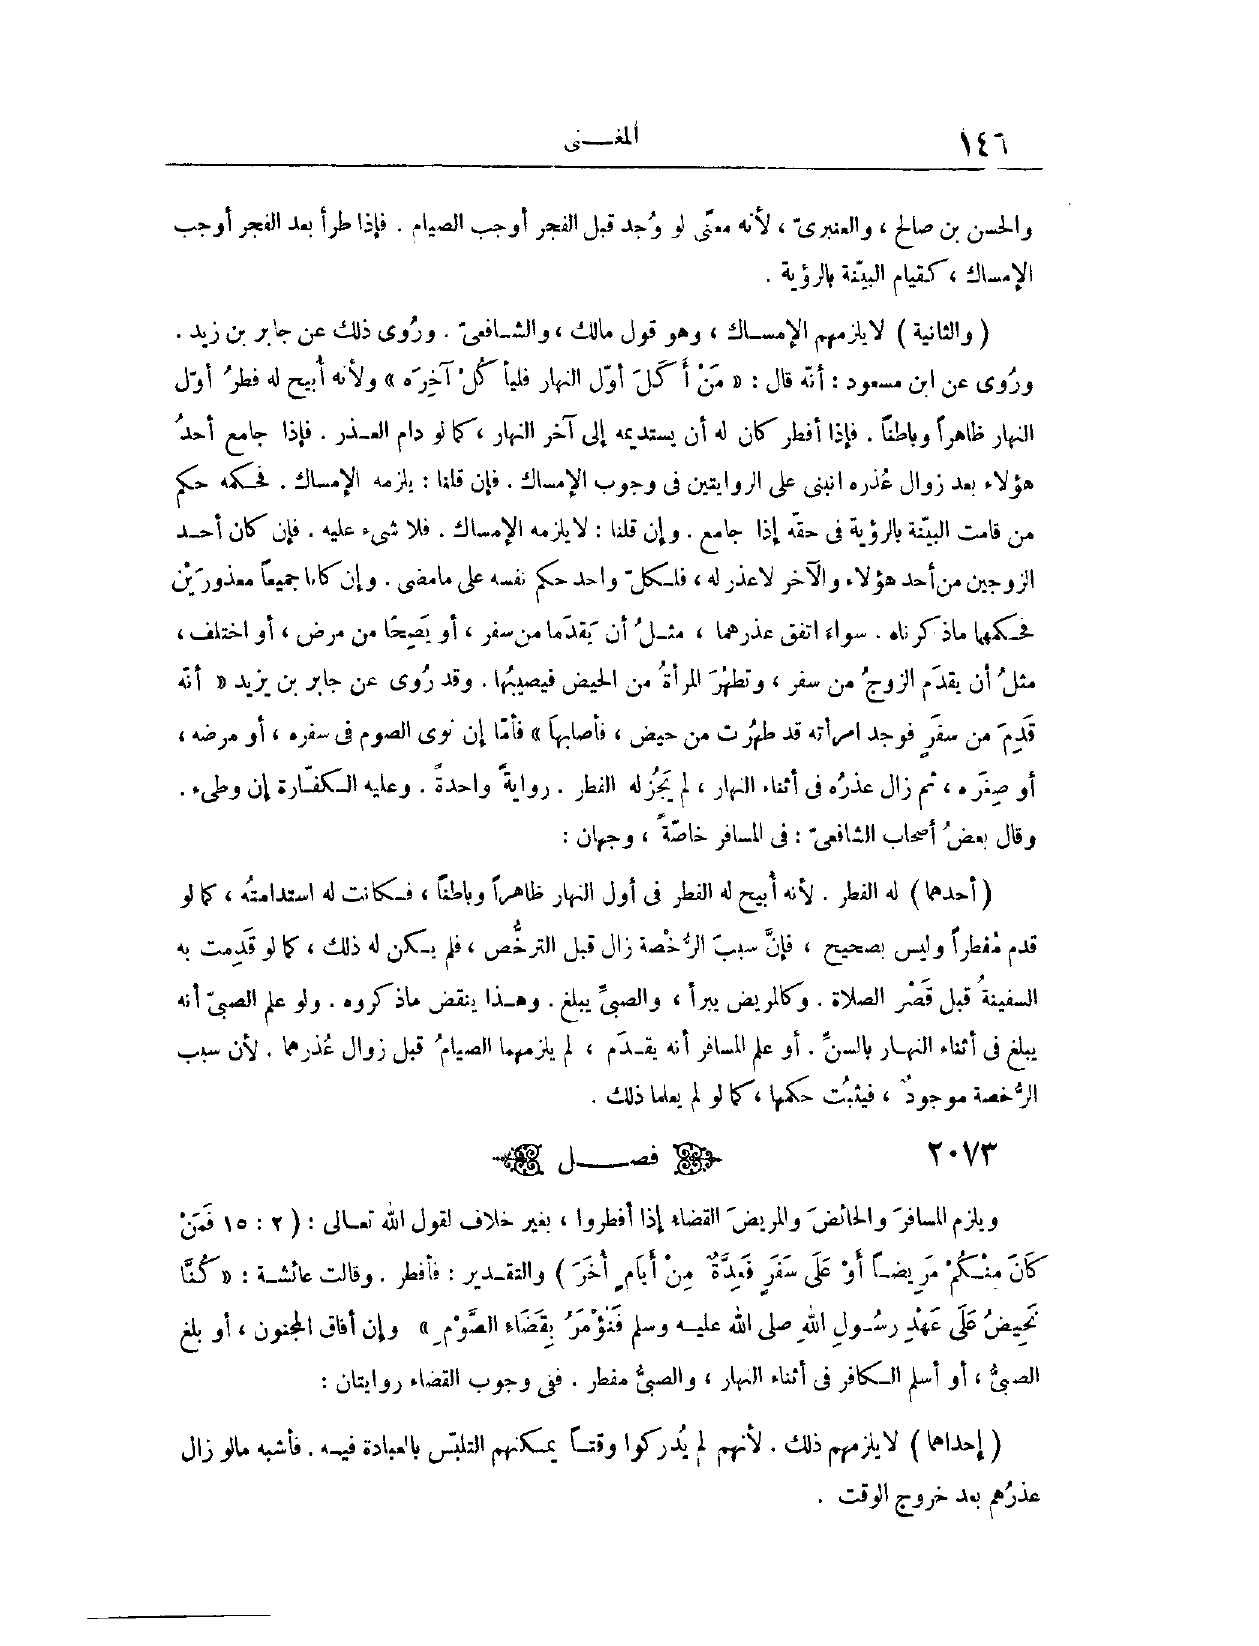 ١٤٦
المغنى
والحسن بن صالح ، والعنبرىّ ، لأنه معنًى لو وُجد قبل الفجر أوجب الصيام . فإذا طرأ بعد الفجر أوجب
الإمساك ، كقيام البيّنة بالرؤية .
( والثانية ) لا يلزمهم الإمساك ، وهو قول مالك ، والشافعىّ . ورُوى ذلك عن جابر بن زيد .
ورُوى عن ابن مسعود : أنّه قال : « مَنْ أَكَلَ أوّل النهار فليأكُلْ آخِرَه » ولأنه أُبيح له فطرُ أوّل
النهار ظاهراً وباطناً . فإذا أفطر كان له أن يستديمه إلى آخر النهار ، كما لو دام العذر . فإذا جامع أحدُ
هؤلاء بعد زوال عُذره انبنى على الروايتين فى وجوب الإمساك . فإن قلنا : يلزمه الإمساك . فحكمه حكم
من قامت البيّنة بالرؤية فى حقّه إذا جامع . وإن قلنا : لا يلزمه الإمساك . فلا شىء عليه . فإن كان أحد
الزوجين من أحد هؤلاء والآخر لاعذر له ، فلكلّ واحد حكم نفسه على مامضى . وإن كانا جميعاً معذورَيْن
فحكمهما ماذكرناه . سواء اتفق عذرهما ، مثلُ أن يَقدَما من سفر ، أو يَصِحّا من مرض ، أو اختلف ،
مثلُ أن يقدَم الزوجُ من سفر ، وتطهُرَ المرأةُ من الحيض فيصيبُها . وقد رُوى عن جابر بن يزيد « أنّه
قَدِمَ من سفَرٍ فوجد امرأته قد طهُرت من حيض ، فأصابها » فأمّا إن نوى الصوم فى سفره ، أو مرضه ،
أو صِغَره ، ثم زال عذرُه فى أثناء النهار ، لم يَجُزْ له الفطر . روايةً واحدةً . وعليه الكفّارة إن وطىء .
وقال بعضُ أصحاب الشافعىّ : فى المسافر خاصّةً ، وجهان :
( أحدهما ) له الفطر . لأنه أُبيح له الفطر فى أول النهار ظاهراً وباطناً ، فكانت له استدامتُه ، كما لو
قدم مُفطراً وليس بصحيح ، فإنَّ سببَ الرُّخْصة زال قبل الترخُّص ، فلم يكن له ذلك ، كما لو قَدِمت به
السفينةُ قبل قَصْر الصلاة . وكالمريض يبرأ ، والصبىِّ يبلغ . وهذا ينقض ماذكروه . ولو علم الصبىّ أنه
يبلغ فى أثناء النهار بالسنِّ . أو علم المسافر أنه يقدَم ، لم يلزمهما الصيامُ قبل زوال عُذرهما . لأن سبب
الرُّخصة موجودٌ ، فيثبُت حكمها ، كما لو لم يعلما ذلك .
٢٠٧٣ فصل
ويلزم المسافرَ والحائضَ والمريضَ القضاء إذا أفطروا ، بغير خلاف لقول الله تعالى : ( ٢ : ١٥ فَمَنْ
كَانَ مِنْكُمْ مَرِيضاً أَوْ عَلَى سَفَرٍ فَعِدَّةٌ مِنْ أَيَّامٍ أُخَرَ ) والتقدير : فأفطر . وقالت عائشة : « كُنَّا
نَحِيضُ عَلَى عَهْدِ رسُولِ اللهِ صلى الله عليه وسلم فَنُؤْمَرُ بِقَضَاء الصَّوْمِ » وإن أفاق المجنون ، أو بلغ
الصبىُّ ، أو أسلم الكافر فى أثناء النهار ، والصبىُّ مفطر . ففى وجوب القضاء روايتان :
( إحداهما ) لا يلزمهم ذلك . لأنهم لم يُدركوا وقتاً يمكنهم التلبّس بالعبادة فيه . فأشبه مالو زال
عذرُهم بعد خروج الوقت .